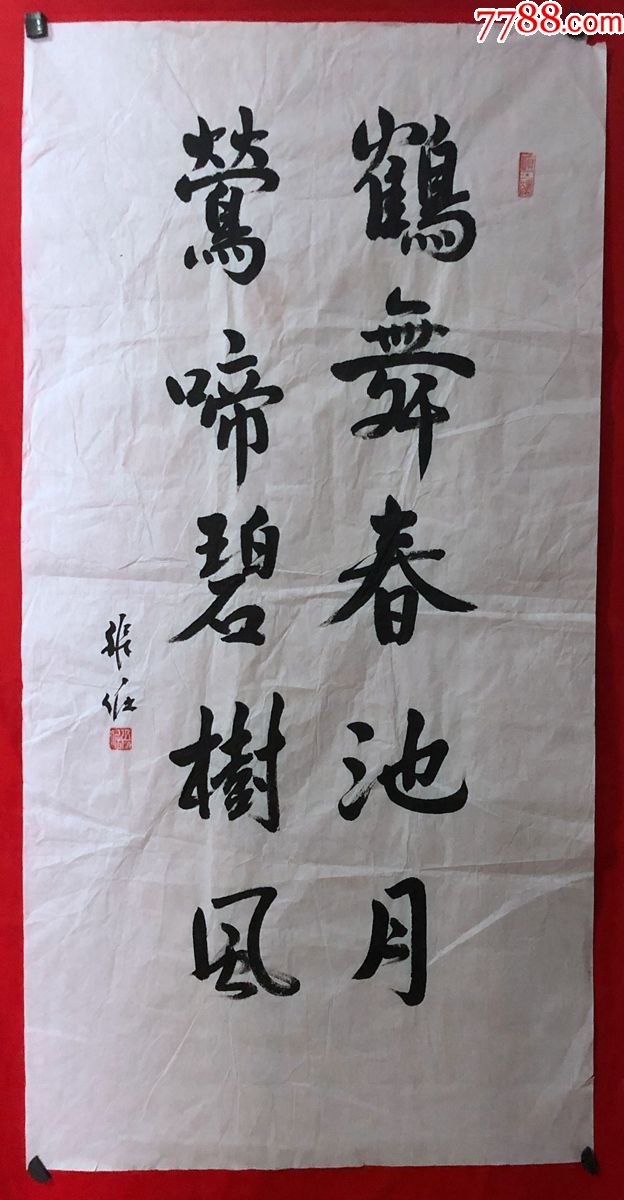 7788.com
鶴舞春池月
鶯啼碧樹風
張